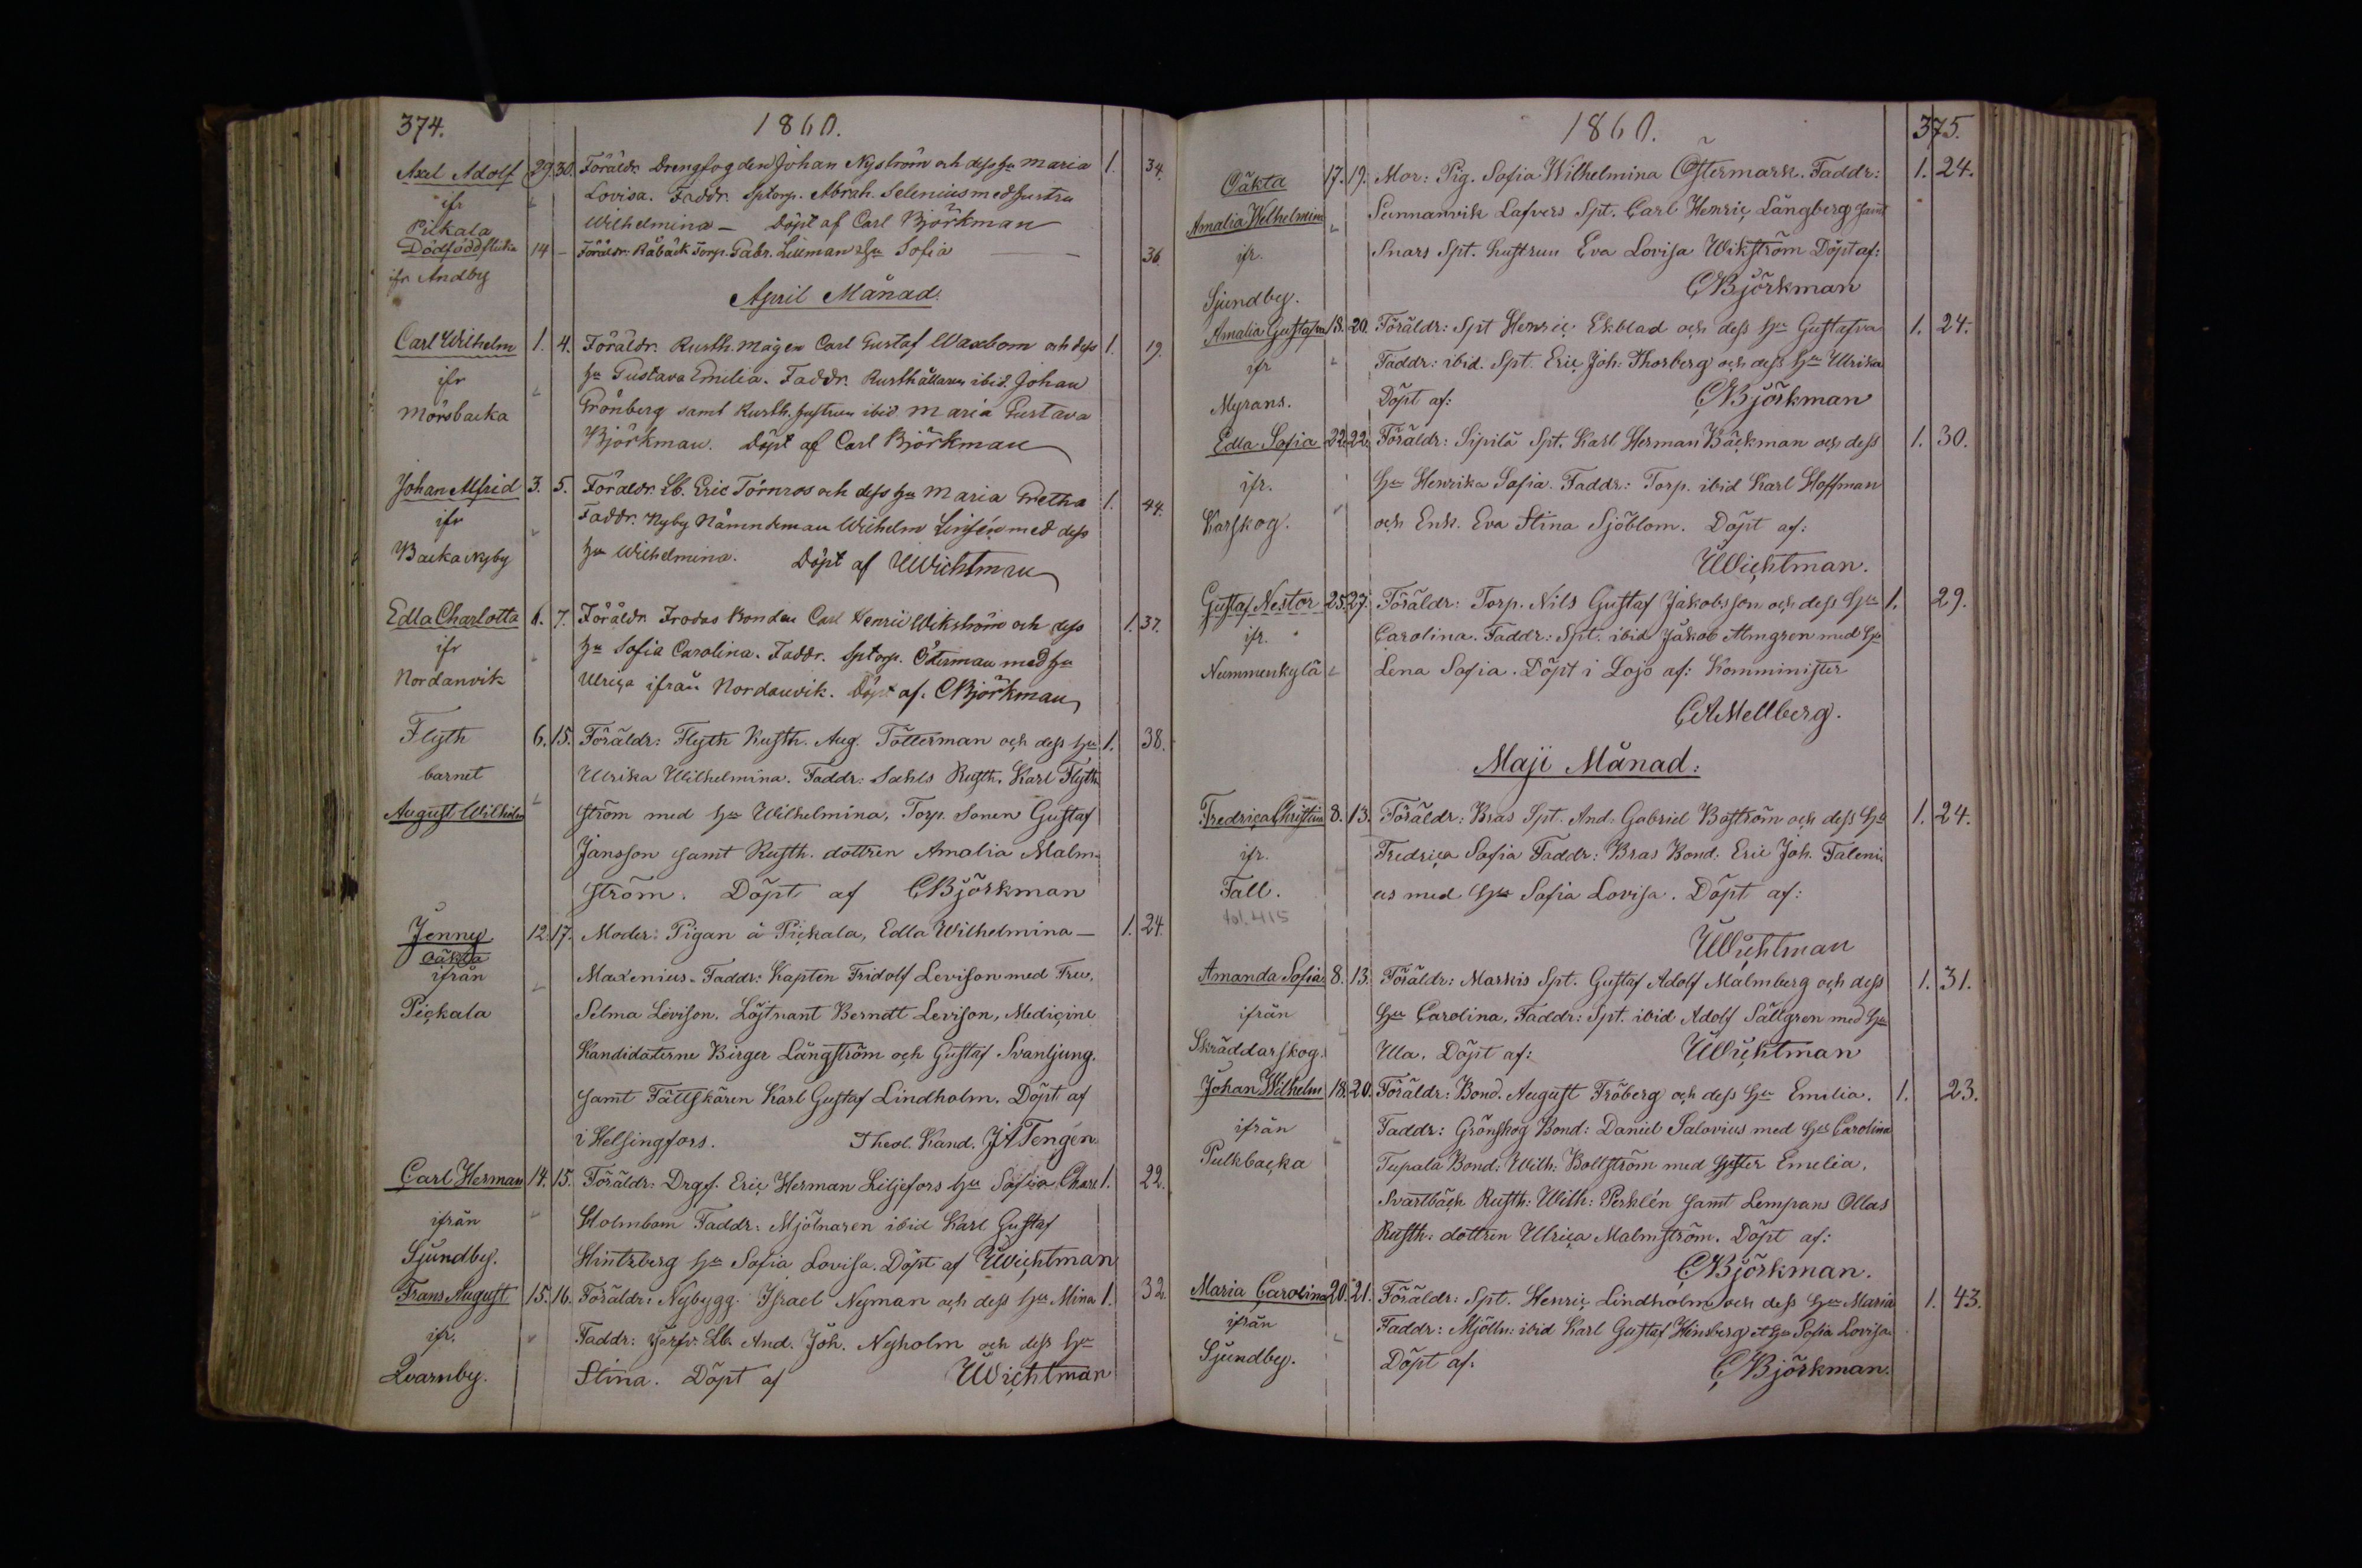 374.
1860.
Axel Adolf 29. 30. Föräldr. Drengfogden Johan Nyström och dess hu Maria 1. 34.
ifr Lovisa. Faddr. Sptorp. Abrah. Selenius med hustru
Pikala Wilhelmina — Döpt af Carl Björkman
Dödfödd flicka 14 – Föräldr. Råbäck Torp. Gabr. Lillman hu Sofia — — 36.
ifr Andby
April Månad.
Carl Wilhelm 1. 4. Föräldr. Rusth. mågen Carl Gustaf Waxbom och dess 1. 19.
ifr hu Gustava Emilia. Faddr. Rusthållaren ibid. Johan
Mörsbacka Grönberg samt Rusth. hustrun ibid Maria Gustava
Björkman. Döpt af Carl Björkman
Johan Alfrid 3. 5. Föräldr. Lb. Eric Törnros och dess hu Maria Gretha 1. 44.
ifr Faddr. Nyby Nämndeman Wilhelm Linsén med dess
Backa Nyby hu Wilhelmina. Döpt af UWichtman
Edla Charlotta 6. 7. Föräldr. Frodas Bonden Carl Henric Wikström och dess 1. 37.
ifr hu Sofia Carolina. Faddr. Sptorp. Österman med hu
Nordanvik Ulrica ifrån Nordanvik. Döpt af. CBjörkman
Flyth 6. 15. Föräldr: Flyth Rusth. Aug. Tötterman och dess hu 1. 38.
barnet Ulrika Wilhelmina. Faddr: Sahls Rusth. Karl Flyth
August Wilhelm ström med hu Wilhelmina, Torp. Sonen Gustaf
Jansson samt Rusth. dottren Amalia Malm-
ström. Döpt af CBjörkman
Jenny 12. 17. Moder: Pigan å Pickala, Edla Wilhelmina — 1. 24.
oäkta
ifrån Maxenius. Faddr: Kapten Fridolf Levison med Fru,
Pickala Selma Levison. Löjtnant Berndt Levison, Medicine
Kandidaterne Birger Långström och Gustaf Svanljung.
samt Fältskären Karl Gustaf Lindholm. Döpt af
i Helsingfors. Theol. Kand. JATengén.
Carl Herman 14. 15. Föräldr: Drgf. Eric Herman Liljefors hu Sofia Charl 1. 22.
ifrån Holmbom Faddr: Mjölnaren ibid Karl Gustaf
Sjundby. Hintzberg hu Sofia Lovisa. Döpt af UWichtman
Frans August 15. 16. Föräldr: Nybygg. Israel Nyman och dess hu Mina 1. 32.
ifr. Faddr: Jerfv. Lb. And. Joh. Nyholm och dess hu
Qvarnby. Stina. Döpt af UWichtman
1860.
375.
Oäkta 17. 19. Mor: Pig. Sofia Wilhelmina Östermark. Faddr: 1. 24.
Amalia Wilhelmina Sunnanvik Lafvers Spt. Carl Henric Långberg samt
ifr. Snars Spt. hustrun Eva Lovisa Wikström Döpt af:
Sjundby. CBjörkman
Amalia Gustafva 18. 20. Föräldr: Spt Henric Ekblad och dess hu Gustafva 1. 24.
ifr Faddr: ibid. Spt. Eric Joh: Thorberg och dess hu Ulrika
Myrans. Döpt af: CBjörkman
Edla Sofia 22. 22. Föräldr: Sipilä Spt. Karl Herman Bäckman och dess 1. 30.
ifr. hu Henrika Sofia. Faddr: Torp. ibid Karl Hoffman
Karskog. och Enk. Eva Stina Sjöblom. Döpt af:
UWichtman.
Gustaf Nestor 25. 27. Föräldr: Torp. Nils Gustaf Jakobsson och dess hu 1. 29.
ifr. Carolina. Faddr: Spt. ibid Jakob Almgren med hu
Nummenkylä Lena Sofia. Döpt i Lojo af: Komminister
CAMellberg.
Maji Månad:
Fredrica Christina 8. 13. Föräldr: Bras Spt. And. Gabriel Boström och dess hu 1. 24.
ifr. Fredrica Sofia Faddr: Bras Bond: Eric Joh. Faleni
Fall. us med hu Sofia Lovisa. Döpt af:
fol. 415
UWichtman
Amanda Sofia 8. 13. Föräldr: Markis Spt. Gustaf Adolf Malmberg och dess 1. 31.
ifrån hu Carolina. Faddr: Spt. ibid Adolf Sällgren med hu
Skräddarskog. Ulla. Döpt af: UWichtman
Johan Wilhelm 18. 20. Föräldr: Bond. August Fröberg och dess hu Emilia. 1. 23.
ifrån Faddr: Grönskog Bond: Daniel Salovius med hu Carolina
Pulkbacka Tupala Bond: Wilh: Boltström med Syster Emelia.
Svartbäck Rusth: Wilh: Perklén samt Lempans Ollas
Rusth: dottren Ulrica Malmström. Döpt af:
CBjörkman.
Maria Carolina 20. 21. Föräldr: Spt. Henric Lindholm och dess hu Maria 1. 43.
ifrån Faddr: Mjölln: ibid Karl Gustaf Hinsberg et hu Sofia Lovisa
Sjundby. Döpt af: CBjörkman.